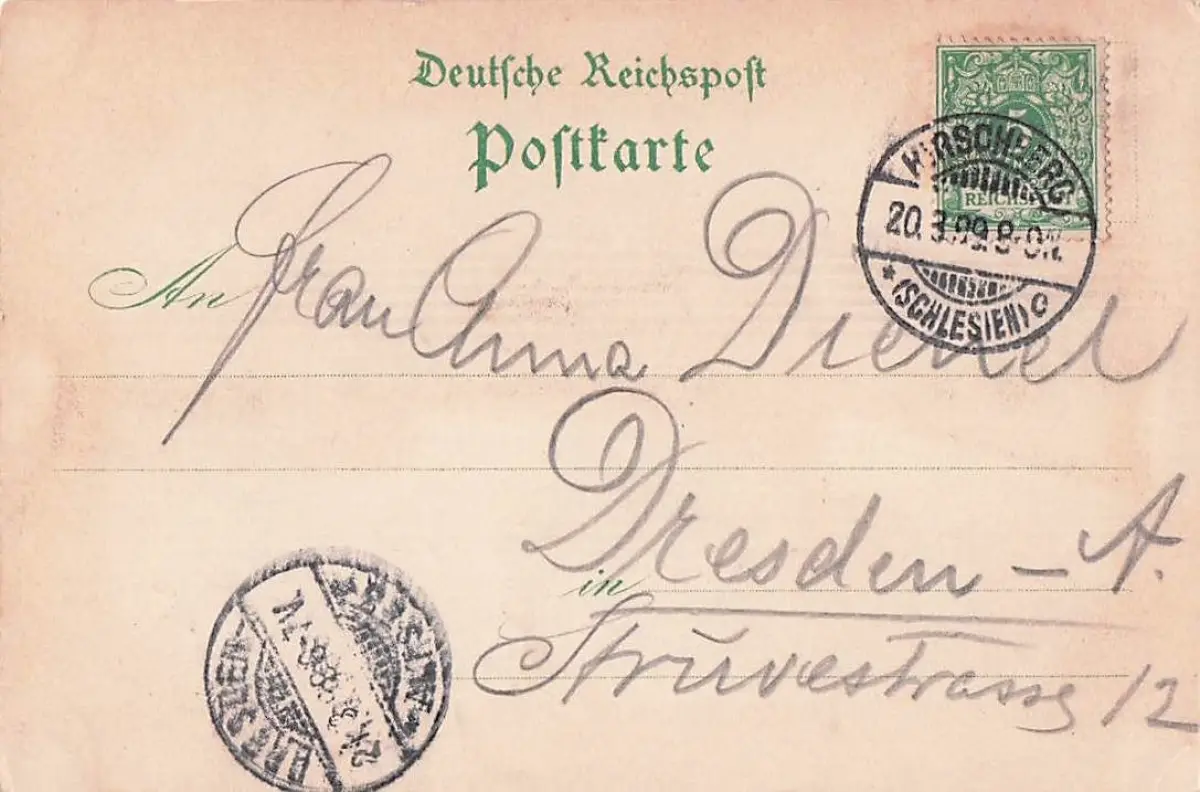 Deutsche Reichspost
Postkarte
5
REICHSPOST
HIRSCHBERG
20.3.99.8-9N.
* (SCHLESIEN) c
An Frau Anna Dienel
in Dresden – A.
Struvestrasse 12
DRESDEN-ALTST.